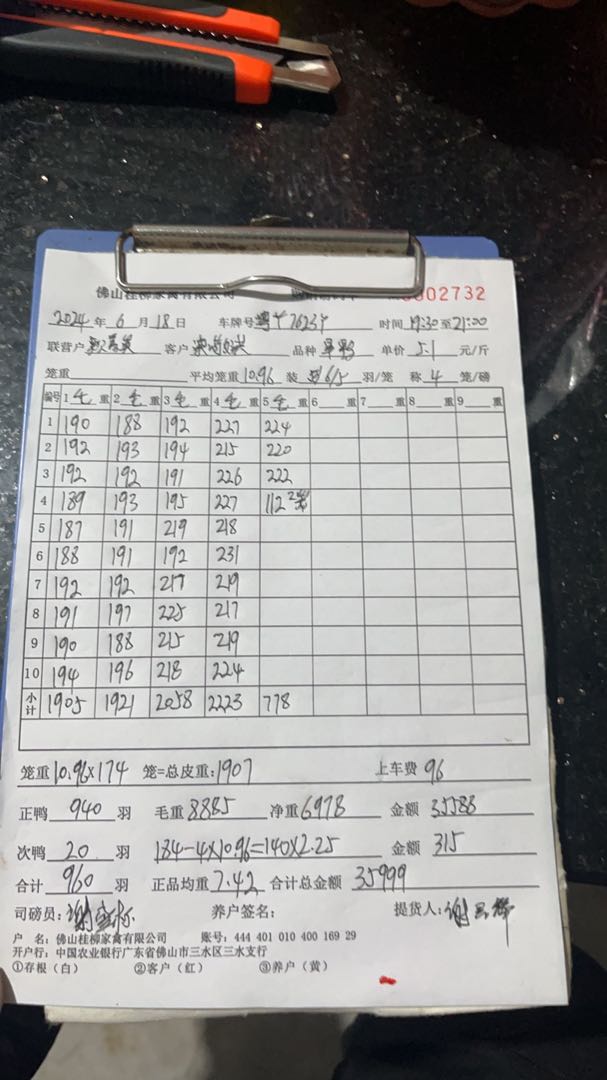 佛山桂柳家禽有限公司 0002732
2024年 6月 18日 车牌号 粤 7623 时间 19:30至21:00
联营户 客户 品种 单价 5.1 元/斤
笼重 平均笼重 10.96 装 6/5 羽/笼 称 4 笼/磅
编号 1毛重 2毛重 3毛重 4毛重 5毛重 6 重 7 重 8 重 9 重
1 190 188 192 227 224
2 192 193 194 215 220
3 192 192 191 226 222
4 189 193 195 227 112 2笼
5 187 191 219 218
6 188 191 192 231
7 192 192 217 219
8 191 197 225 217
9 190 188 215 219
10 194 196 218 224
小计 1905 1921 2058 2223 778
笼重 10.96×174 笼=总皮重:1907 上车费 96
正鸭 940 羽 毛重 8885 净重 6978 金额 35588
次鸭 20 羽 184-4×10.96=140×2.25 金额 315
合计 960 羽 正品均重 7.42 合计总金额 35999
司磅员: 养户签名: 提货人:
户 名:佛山桂柳家禽有限公司 账号:444 401 010 400 169 29
开户行:中国农业银行广东省佛山市三水区三水支行
①存根(白) ②客户(红) ③养户(黄)